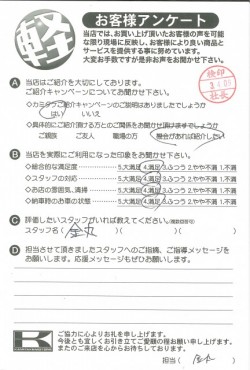 軽
お客様アンケート
当店では、お買い上げ頂いたお客様の声を可能
な限り現場に反映し、お客様により良い商品と
サービスを提供する事に努めています。
大変お手数ですが是非お声をお聞かせ下さい。
検印
社長
A 当店はご紹介を大切にしております。
ご紹介キャンペーンについてお聞かせ下さい。
ご紹介キャンペーンのご説明はありましたでしょうか
はい いいえ
具体的にご紹介頂ける方とのご関係をお聞かせ頂けますでしょうか
ご親族 ご友人 職場の方 機会があれば紹介したい
B 当店を実際にご利用になった印象をお聞かせ下さい。
◇総合的な満足度 5.大満足 4.満足 3.ふつう 2.やや不満 1.不満
◇スタッフの対応 5.大満足 4.満足 3.ふつう 2.やや不満 1.不満
◇お店の雰囲気、清掃 5.大満足 4.満足 3.ふつう 2.やや不満 1.不満
◇納車時のお車の状態 5.大満足 4.満足 3.ふつう 2.やや不満 1.不満
C 評価したいスタッフがいれば教えてください。(複数回答可)
スタッフ名( 金丸 )
D 担当させて頂きましたスタッフへのご指摘、ご指導メッセージを
お願いします。応援メッセージもぜひお願いします。
K
ご協力に心よりお礼を申し上げます。
今後とも宜しくお引き立てご愛顧の程お願い申し上げます。
またのご来店を心からお待ちしております。
担当( 金丸 )